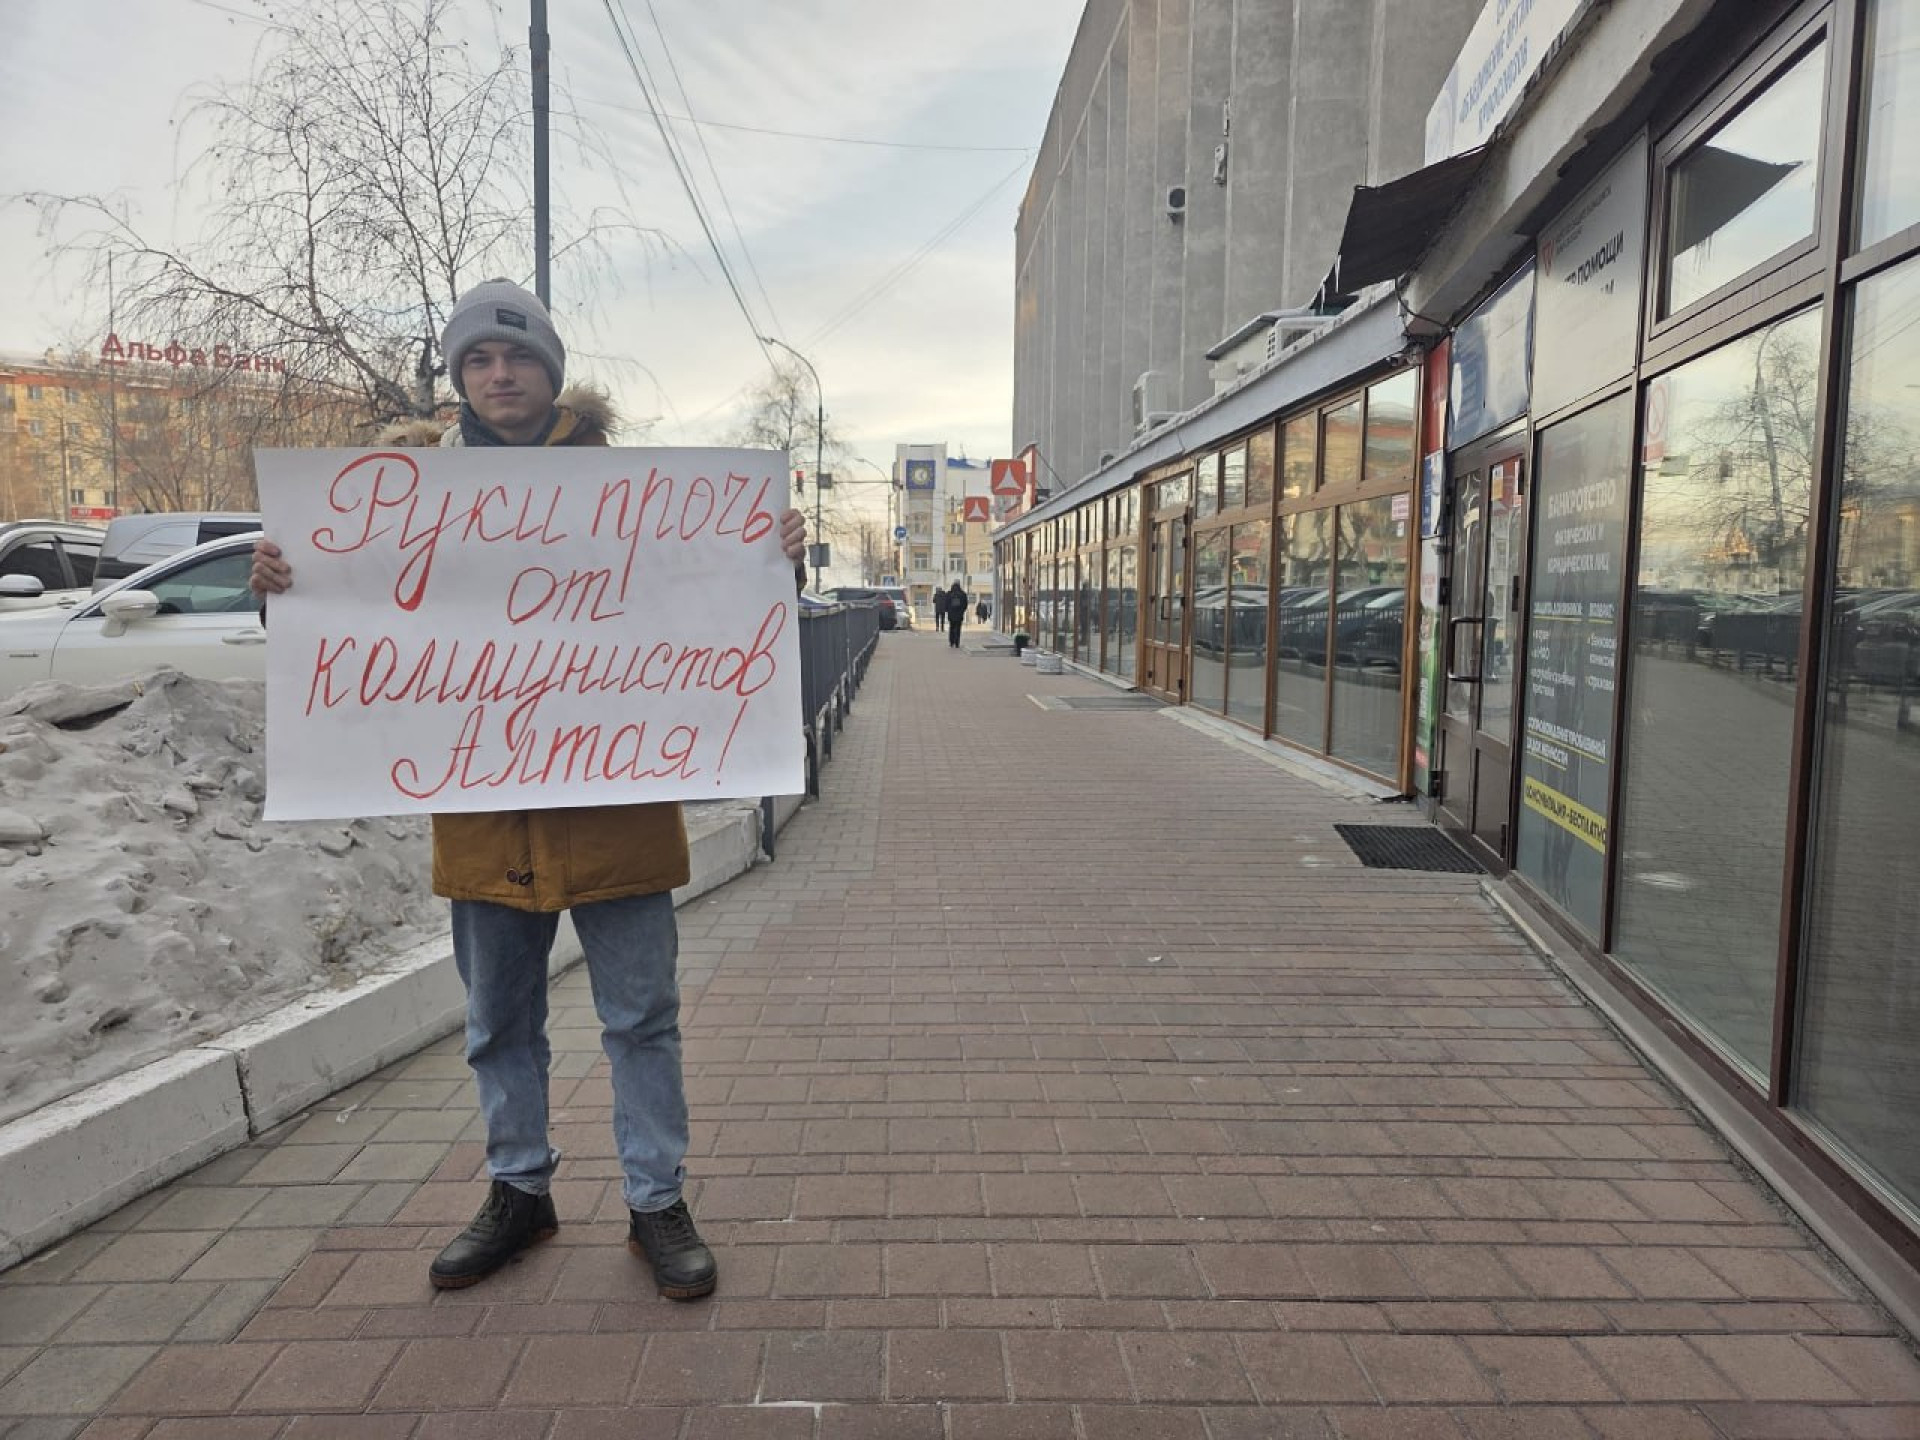 Альфа Банк
Руки прочь
от
коммунистов
Алтая!
ПОМОЩИ
БАНКРОТСТВО
ФИЗИЧЕСКИХ И
ЮРИДИЧЕСКИХ ЛИЦ
СОПРОВОЖДЕНИЕ ПРОБЛЕМНОЙ
ЗАДОЛЖЕННОСТИ
КОНСУЛЬТАЦИЯ-БЕСПЛАТНО